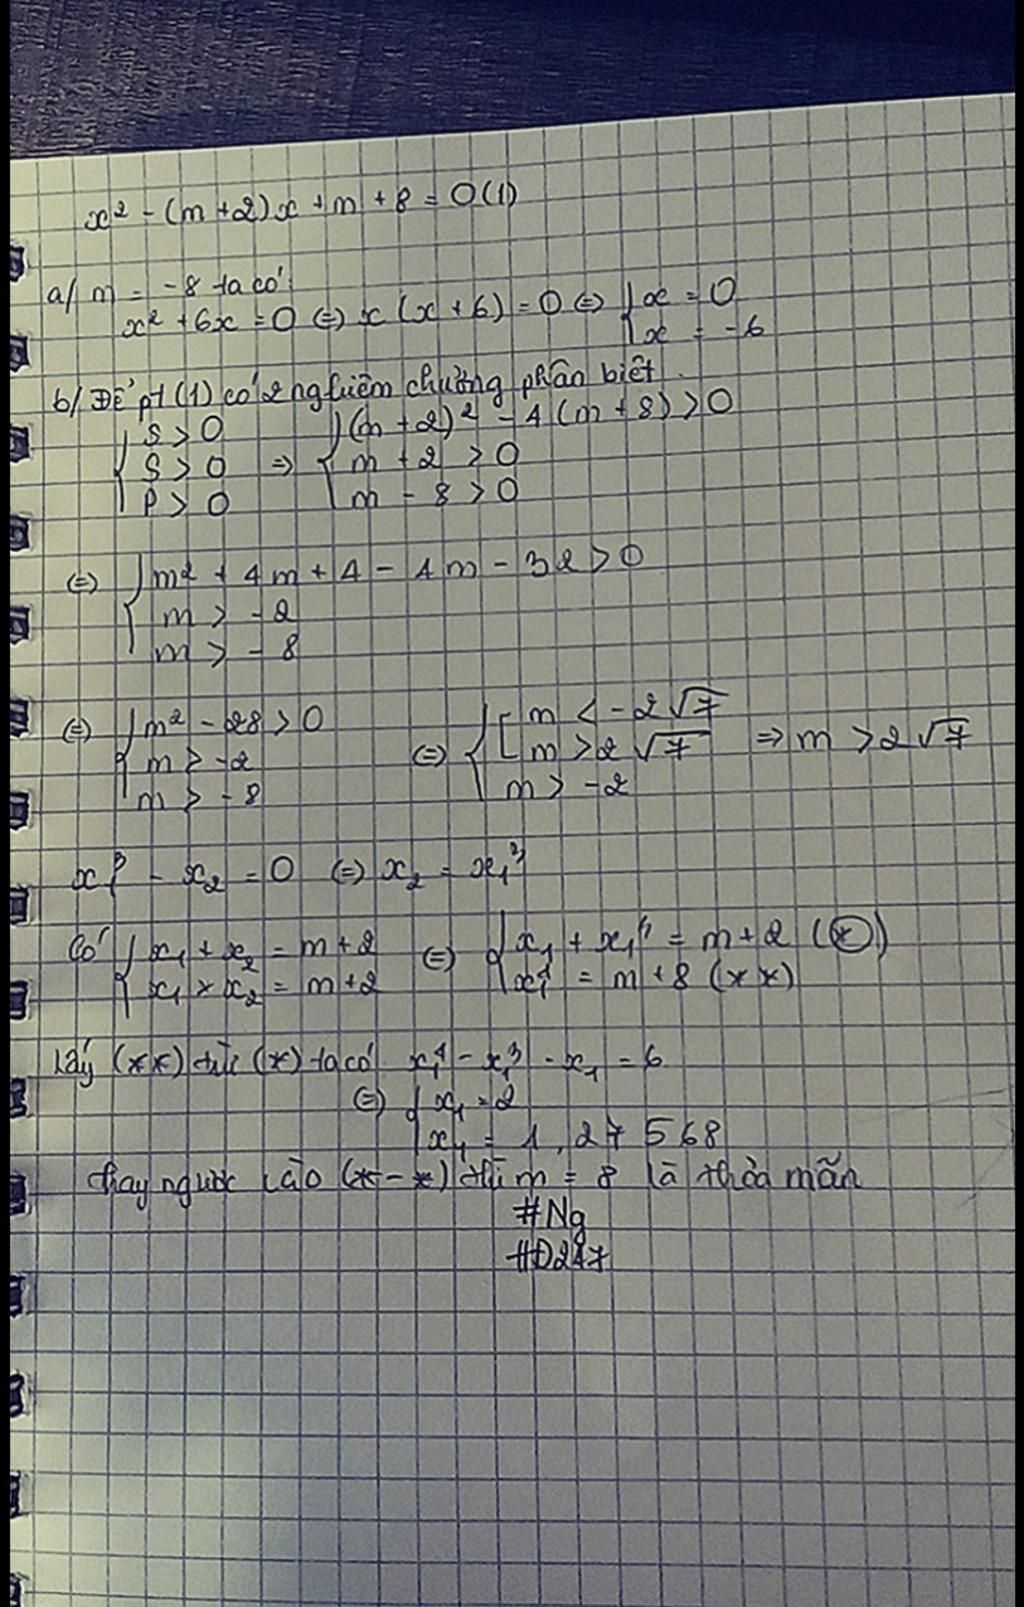 x² - (m+2)x + m + 8 = 0 (1)
a/ m = -8 ta có
x² + 6x = 0 (=) x (x + 6) = 0 (=) { x = 0
x = -6
b/ Để pt (1) có 2 nghiệm phân biệt
{ S > 0 { (m+2)² - 4 (m+8) > 0
S > 0 => m + 2 > 0
P > 0 m - 8 > 0
(=) { m² + 4m + 4 - 4m - 32 > 0
m > -2
m > -8
(=) { m² - 28 > 0 (=) { [ m < -2√7
m > -2 m > 2√7 => m > 2√7
m > -8 m > -2
x₁³ - x₂ = 0 (=) x₂ = x₁³
Có { x₁ + x₂ = m+2 (=) { x₁ + x₁" = m+2 (*)
x₁ × x₂ = m+2 x₁⁴ = m+8 (**)
Lấy (**) trừ (*) ta có x₁⁴ - x₁³ - x₁ = 6
(=) { x₁ = 2
x₁ = 1,27568
thay ngược vào (*-*) thì m = 8 là thỏa mãn
#Ng
#D247